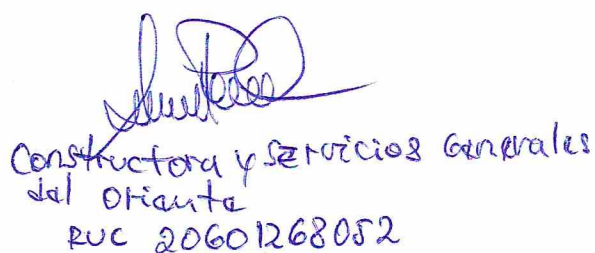 Constructora y Servicios Generales
del Oriente
RUC 20601268052